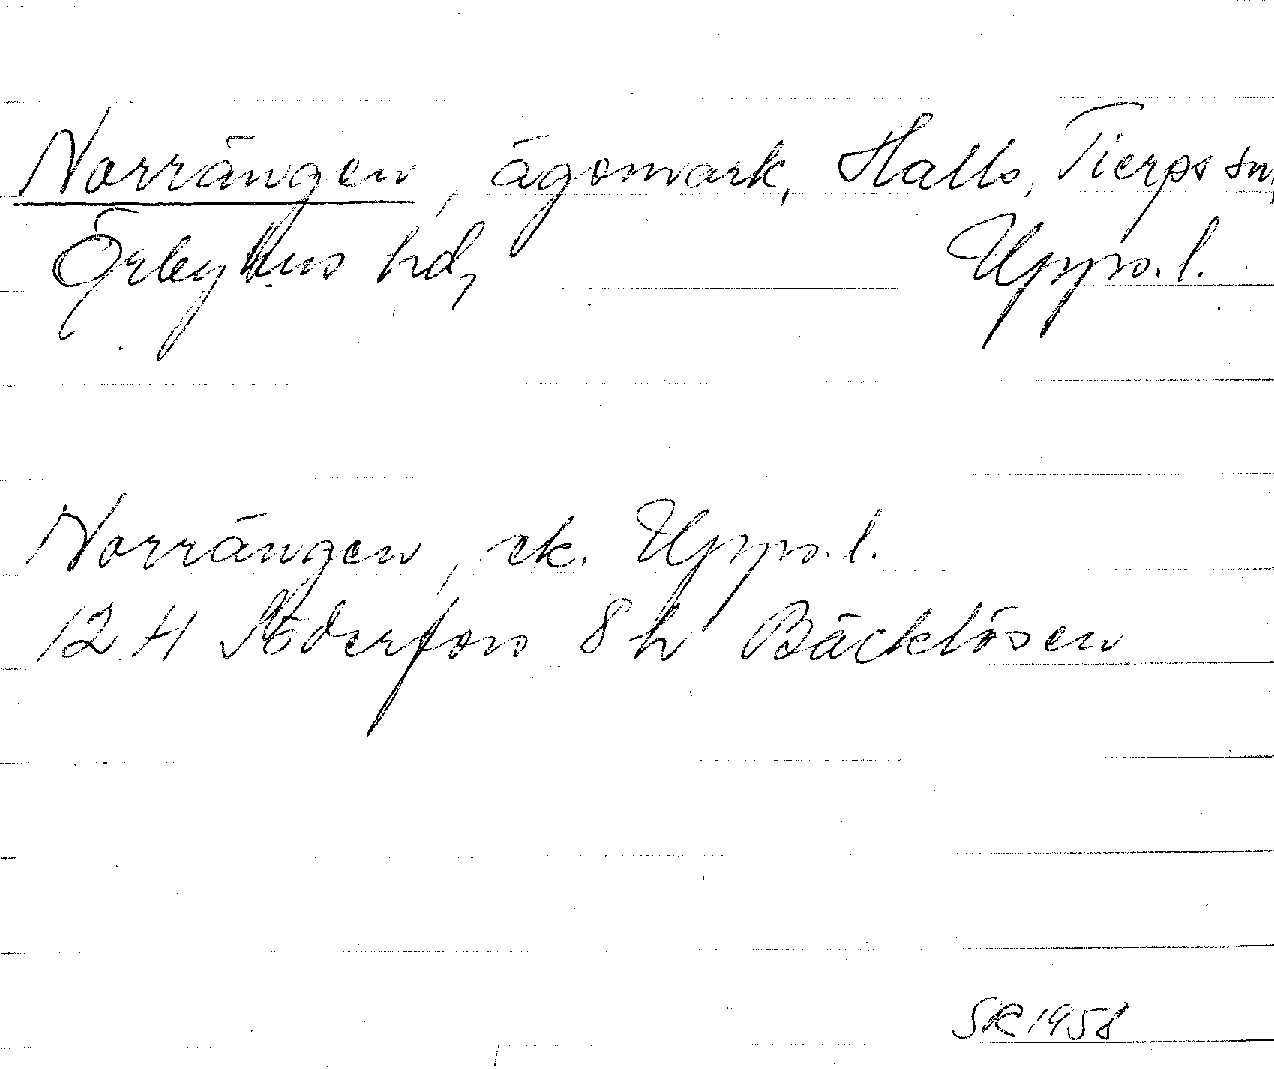 Norrängen, ägomark, Halls, Tierps sn,
Örbyhus hd, Upps. l.
Norrängen, ek. Upps. l.
12 H Söderfors 8 h Bäcklösen
SR 1958